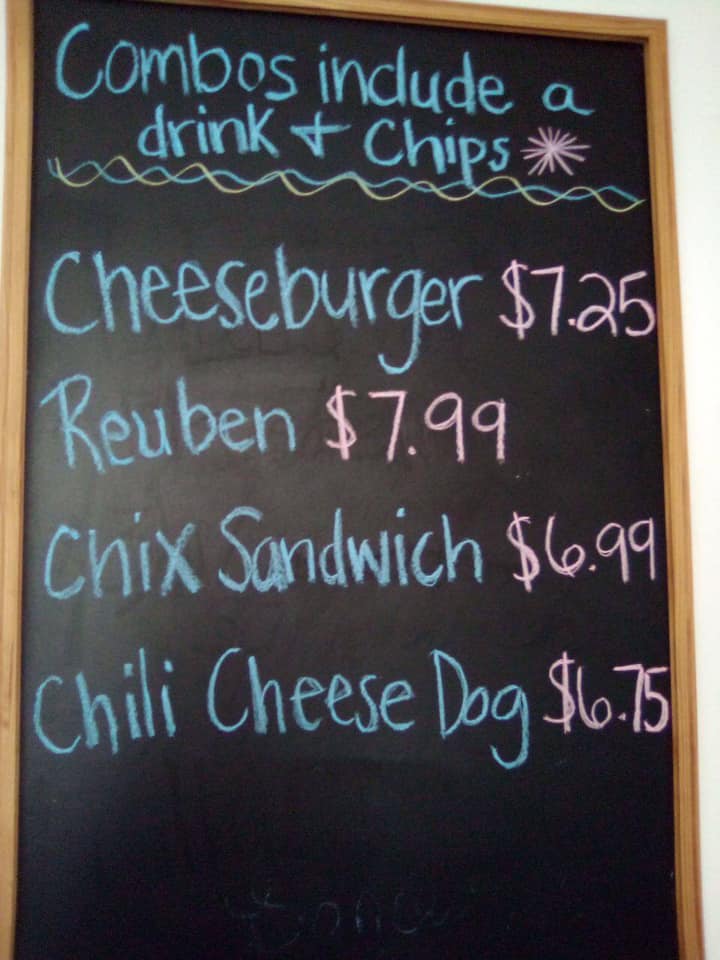 Combos include a
drink + Chips
Cheeseburger $7.25
Reuben $7.99
Chix Sandwich $6.99
Chili Cheese Dog $6.75